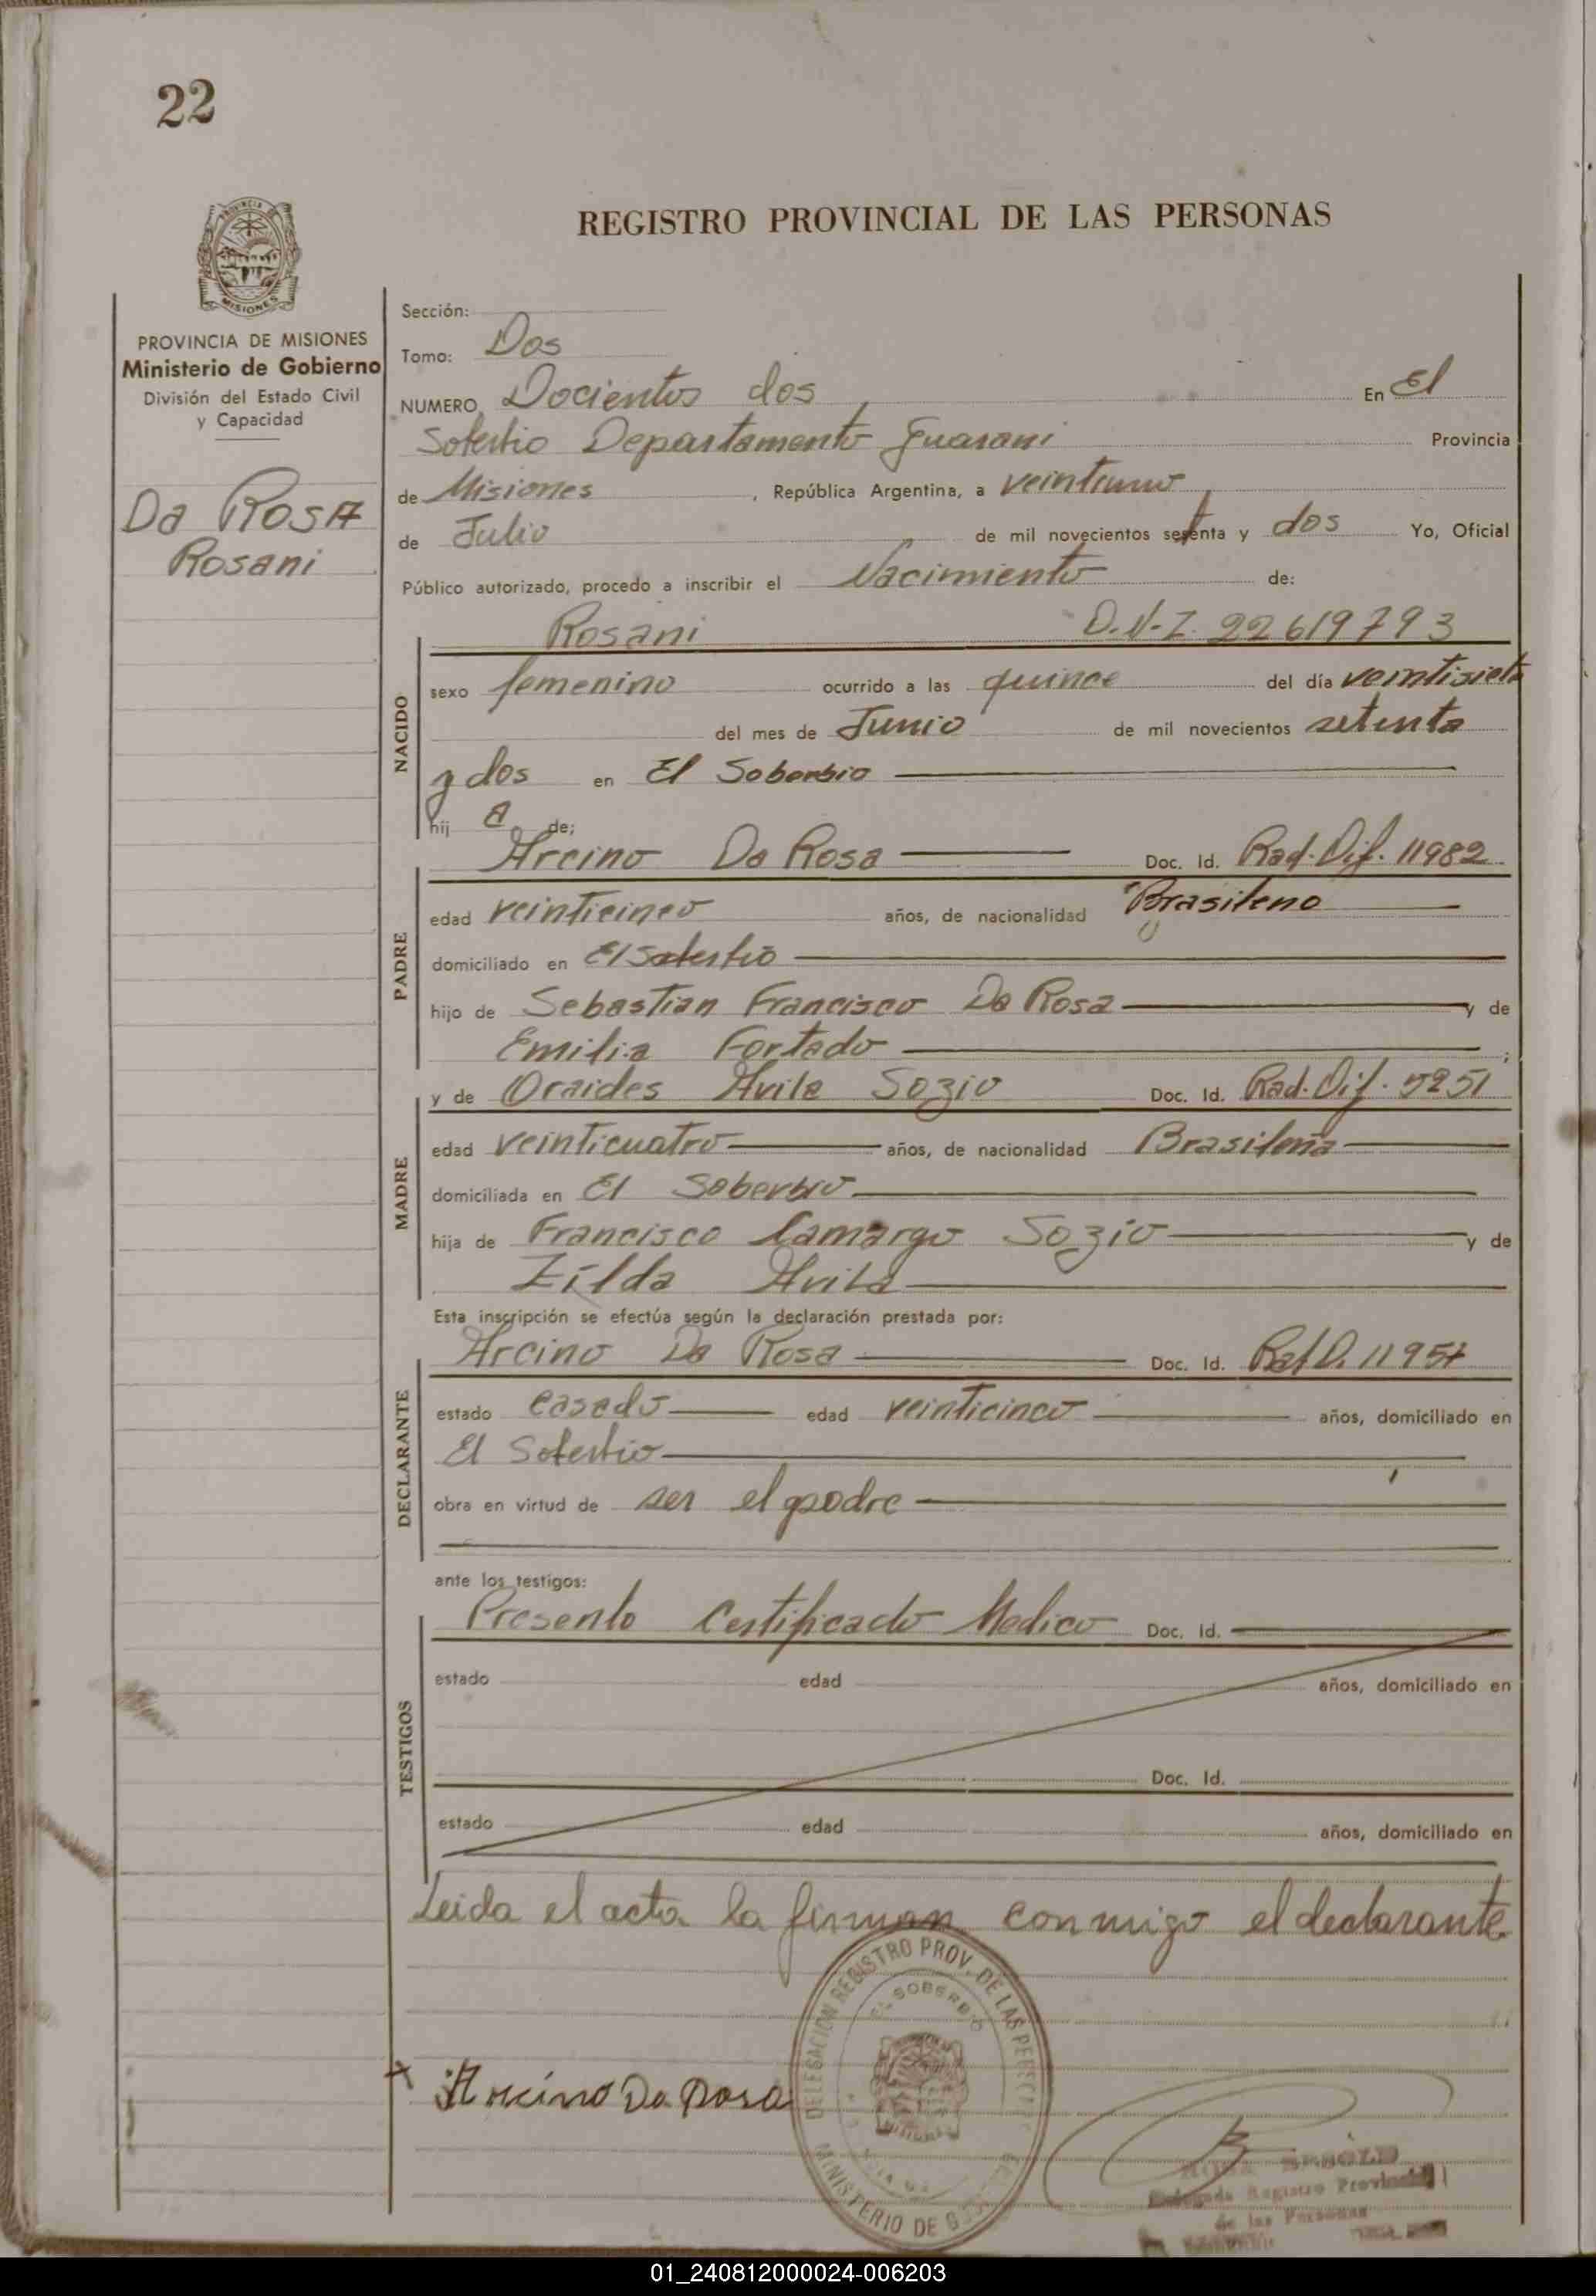 22
REGISTRO PROVINCIAL DE LAS PERSONAS
PROVINCIA DE
MISIONES
PROVINCIA DE MISIONES
Ministerio de Gobierno
División del Estado Civil
y Capacidad
Da Rosa
Rosani
Sección:
Tomo: Dos
NUMERO Docientos dos En El
Soberbio Departamento Guarani Provincia
de Misiones, República Argentina, a veintiuno
de Julio de mil novecientos setenta y dos Yo, Oficial
Público autorizado, procedo a inscribir el Nacimiento de:
Rosani D.N.I. 22619793
NACIDO
sexo femenino ocurrido a las quince del día veintisiete
del mes de Junio de mil novecientos setenta
y dos en El Soberbio
hij a de;
Arcino Da Rosa Doc. Id. Rad. Dif. 11982
PADRE
edad veinticinco años, de nacionalidad Brasileno
domiciliado en El Soberbio
hijo de Sebastian Francisco Da Rosa y de
Emilia Fortado ;
y de Oraides Avila Sozio Doc. Id. Rad. Dif. 5251
MADRE
edad veinticuatro años, de nacionalidad Brasileña
domiciliada en El Soberbio
hija de Francisco Camargo Sozio y de
Zilda Avila
Esta inscripción se efectúa según la declaración prestada por:
Arcino Da Rosa Doc. Id. 1195
DECLARANTE
estado casado edad veinticinco años, domiciliado en
El Soberbio
obra en virtud de ser el padre
ante los testigos:
Presento Certificado Medico Doc. Id.
TESTIGOS
estado edad años, domiciliado en
Doc. Id.
estado edad años, domiciliado en
Leida el acta la firman conmigo el declarante
DELEGACION REGISTRO PROV. DE LAS PERSONAS
EL SOBERBIO
MISIONES
MINISTERIO DE
x Arcino Da Rosa
Delegada Registro Provincial
de las Personas
01_240812000024-006203